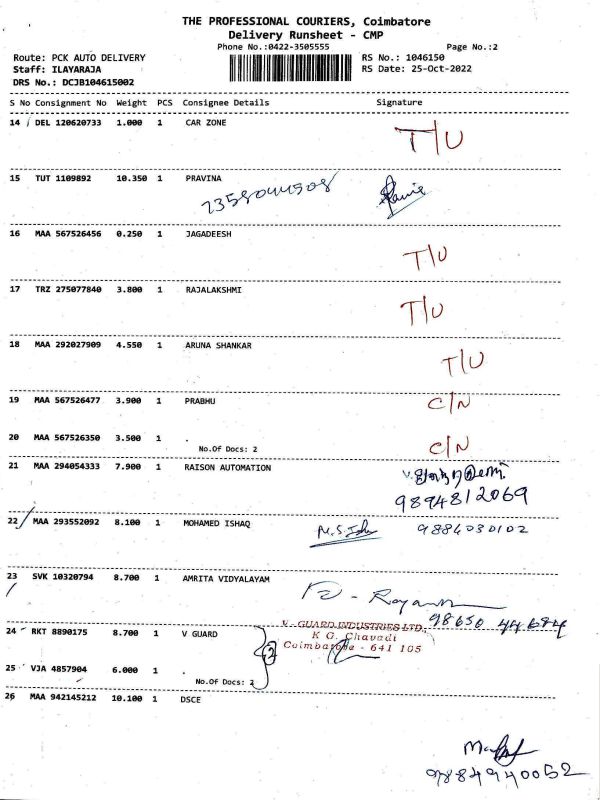 THE PROFESSIONAL COURIERS, Coimbatore
Delivery Runsheet - CMP
Phone No.:0422-3505555 Page No.:2
Route: PCK AUTO DELIVERY RS No.: 1046150
Staff: ILAYARAJA RS Date: 25-Oct-2022
DRS No.: DCJB104615002
S No Consignment No Weight PCS Consignee Details Signature
14 DEL 120620733 1.000 1 CAR ZONE T/U
15 TUT 1109892 10.350 1 PRAVINA
16 MAA 567526456 0.250 1 JAGADEESH T/U
17 TRZ 275077840 3.800 1 RAJALAKSHMI T/U
18 MAA 292027909 4.550 1 ARUNA SHANKAR T/U
19 MAA 567526477 3.900 1 PRABHU C/N
20 MAA 567526350 3.500 1 . C/N
No.Of Docs: 2
21 MAA 294054333 7.900 1 RAISON AUTOMATION
9894812069
22 MAA 293552092 8.100 1 MOHAMED ISHAQ 9884030102
23 SVK 10320794 8.700 1 AMRITA VIDYALAYAM
98650 44684
24 RKT 8890175 8.700 1 V GUARD V - GUARD INDUSTRIES LTD.,
K G. Chavadi
Coimbatore - 641 105
25 VJA 4857904 6.000 1 .
No.Of Docs: 2
26 MAA 942145212 10.100 1 DSCE
9884940052